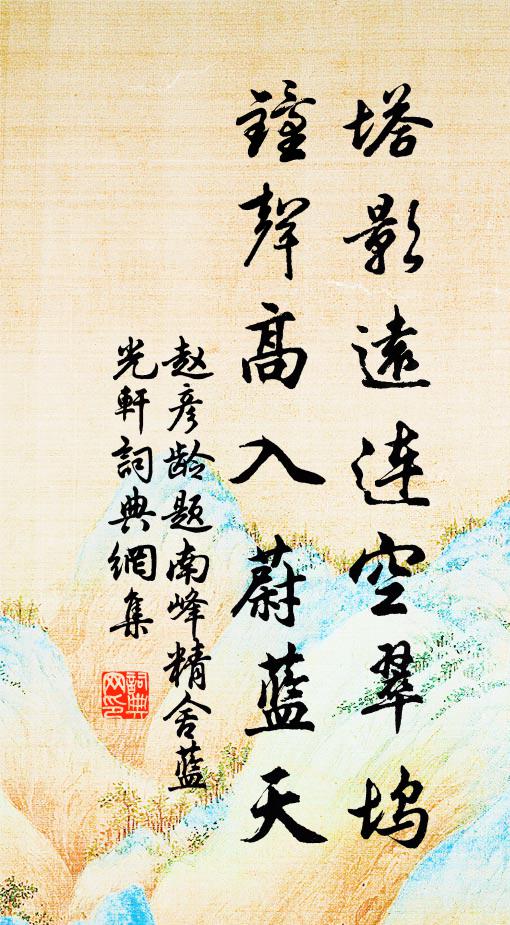 塔影遠連空翠塢
鐘聲高入蔚藍天
赵彦龄题南峰精舍蓝
光軒詞典網集
詞典
网印